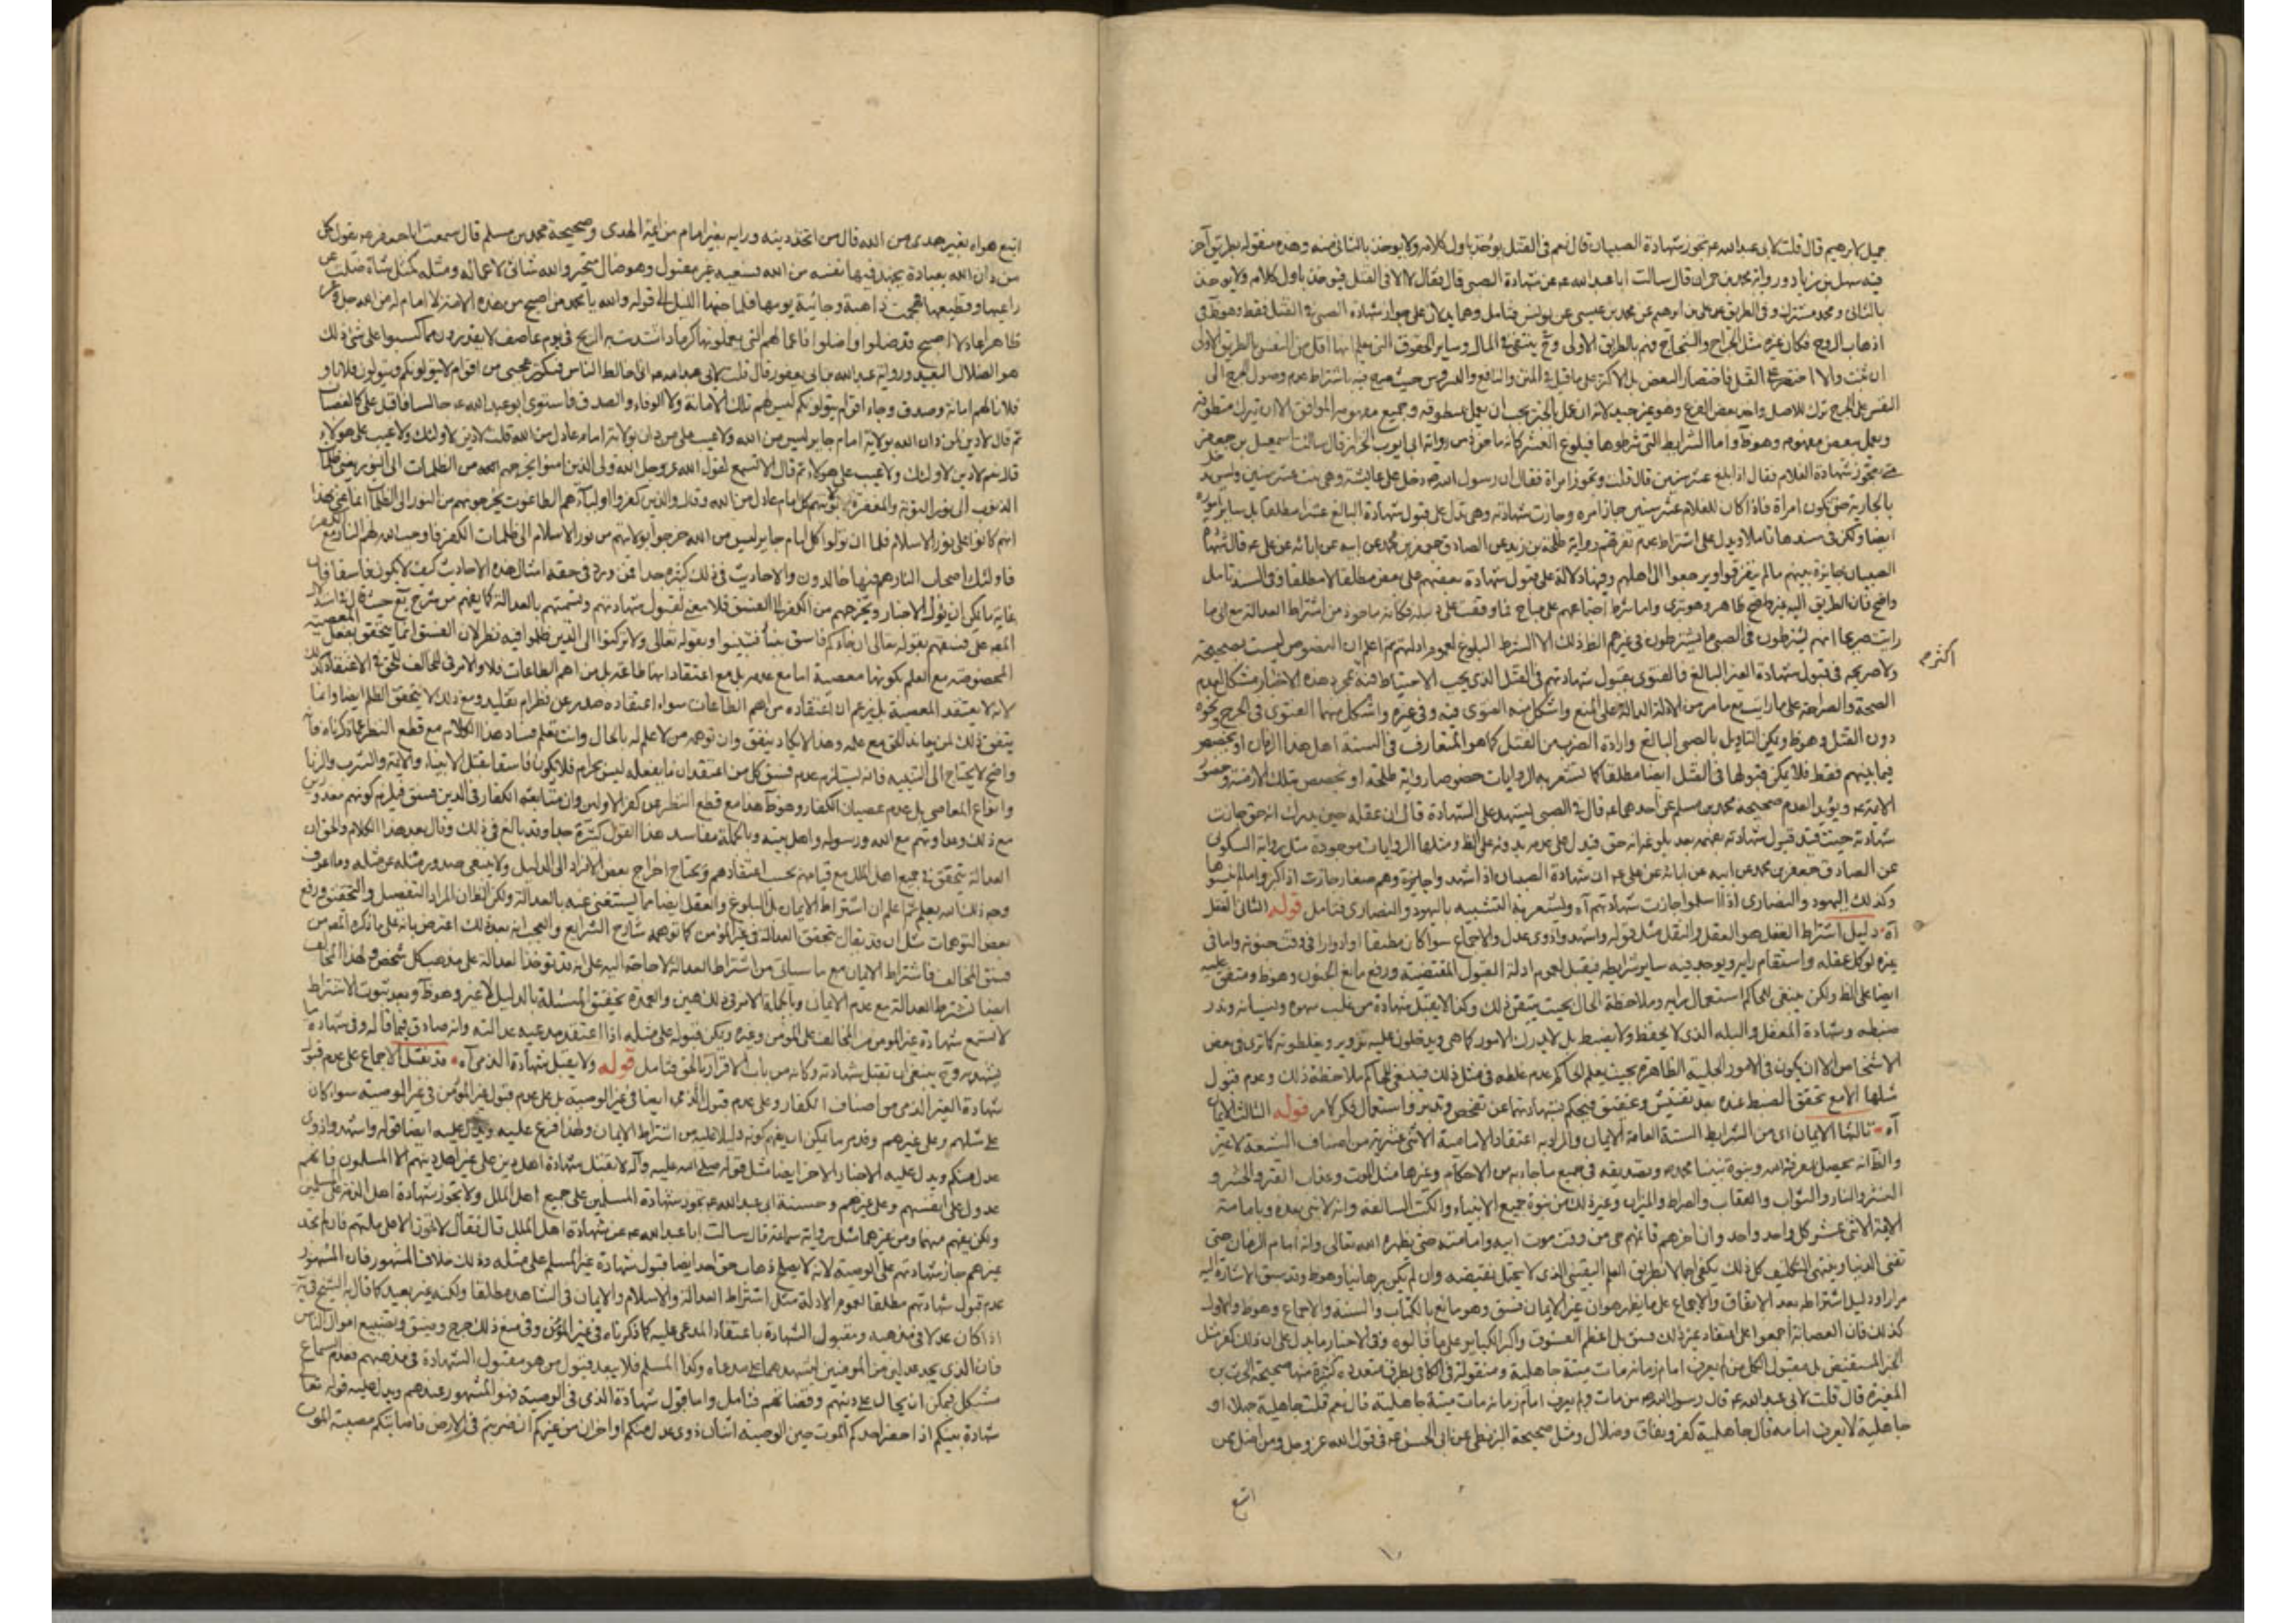 جميل لابرهيم قال قلت لابى عبدالله ع تجوز شهادة الصبيان قال نعم فى القتل يؤخذ باول كلامه ولايوخذ بالثانى منه وهذه منقوله بطريق آخر
فيه سهل بن زياد ورواية محمد بن حمران قال سالت اباعبدالله ع عن شهادة الصبى قال فقال لا الا فى القتل يوخذ باول كلامه ولايوخذ
بالثانى ومحمد مشترك وفى الطريق على بن ابرهيم عن محمد بن عيسى عن يونس فتامل وهما يدلان على جواز شهادة الصبى فى القتل فقط وهوظ فى
اذهاب الروح فكان غيره مثل الجراح والشجاج فهم بالطريق الاولى وح ينتفى فى المال وساير الحقوق التى يعلم انها اقل من النفس بالطريق الاولى
النفس على الجرح ترك للاصل واخذ بعض الفرع وهو غير جيد لانه ان عمل بالخبر يجب ان يعمل بمنطوقه وجميع مفهومه الموافق الا ان يترك منطوقه
ويعمل ببعض مفهومه وهوظ واما الشرايط التى شرطوها فبلوغ العشر كانه ماخوذ من رواية ابى ايوب الخزاز قال سالت اسمعيل بن جعفر متى
تجوز شهادة الغلام فقال اذا بلغ عشر سنين قال قلت ويجوز امره فقال ان رسول الله ص دخل على عايشة وهى بنت عشر سنين وليس يدخل
بالجارية حتى تكون امراة فاذا كان للغلام عشر سنين جاز امره وجازت شهادته وهى تدل على قبول شهادة البالغ عشرا مطلقا بل ساير اموره
ايضا ولكن فى سندها تامل ويدل على اشتراط عدم تفرقهم رواية طلحة بن زيد عن الصادق جعفر بن محمد عن ابيه عن ابائه عن على ع قال شهادة
الصبيان جايزة بينهم مالم يتفرقوا او يرجعوا الى اهلهم وفيها دلالة على قبول شهادة بعضهم على بعض مطلقا لا مطلقا وفى السند تامل
واضح فان الطريق اليه غير واضح ظاهر وهو بترى واما شرط اجتماعهم على مباح فما وقفت على دليله فكانه ماخوذ من اشتراط العدالة مع انى ما
رايت صريحا انهم يشترطون فى الصبى ما يشترطون فى غيرهم الظ ذلك الا الشرط البلوغ لعموم ادلتهم ثم اعلم ان النصوص ليست بصحيحة
اكثرم
ولا صريحة فى قبول شهادة الغير البالغ فالفتوى بقبول شهادتهم فى القتل الذى يجب الاحتياط فيه بمجرد هذه الاخبار مشكل لعدم
الصحة والصراحة على ما رايت مع ما مر من الادلة الدالة على المنع واشكل منه الفتوى فيه وفى غيره واشكل منهما الفتوى فى الجرح ونحوه
دون القتل وهوظ ويمكن التاويل بالصبى البالغ وارادة القريب من القتل كما هو المتعارف فى السنة اهل هذا الزمان او تخصيصه
فيما بينهم فقط فلا يمكن قبولها فى القتل ايضا مطلقا كما تشعر به الروايات خصوصا رواية طلحة او تخصيص بتلك الازمنة وحضور
الايمة ع ويؤيد العدم صحيحة محمد بن مسلم عن احدهما ع قال فى الصبى يشهد على الشهادة قال ان عقله حين يدرك انه حق جازت
شهادته حيث قيد قبول شهادته بفهمه بعد بلوغه انه حق فيدل على عدمه بدونه على الظ ومثلها الروايات موجودة مثل رواية السكونى
عن الصادق جعفر بن محمد عن ابيه عن ابائه عن على ع ان شهادة الصبيان اذا شهدوا جايزة وهم صغار جازت اذا كبروا مالم ينسوها
وكذلك اليهود والنصارى اذا اسلموا جازت شهادتهم آه ويشعر به التشبيه باليهود والنصارى فتامل قوله الثانى العقل
آه دليل اشتراط العقل هو العقل والنقل مثل قوله واشهدوا ذوى عدل والاجماع سوا كان مطبقا او ادوارا فى وقت جنونه واما فى
غيره لو كمل عقله واستقام رايه ويوجد فيه ساير شرايطه فيقبل لعموم ادلة القبول المقتضية ورفع مانع الجنون وهوظ ومتفق عليه
ايضا على الظ ولكن ينبغى للحاكم استعمال رايه وملاحظة الحال بحيث يتيقن ذلك وكذا لا يقبل شهادة من غلب سهوه ونسيانه وندر
ضبطه وشهادة المغفل والبله الذى لا يحفظ ولا يضبط بل لا يدرك الامور كما هى ويدخلون عليه تزوير ويغلطونه كما ترى فى بعض
الاشخاص الا ان يكون فى الامور الجلية الظاهرة بحيث يعلم الحاكم عدم غلطه فى مثل ذلك فينبغى للحاكم ملاحظة ذلك وعدم قبول
مثلها الا مع تحقق الضبط عنده بعد تفتيش وتحقيق فيحكم بشهادتها عن تفحص وتدبر واستعمال فكر كامل قوله الثالث الايمان
آه ثالثها الايمان اى من الشرايط الستة العامة الايمان والمراد به اعتقاد الامامية الاثنى عشرية من اصناف الشيعة لا غير
والظ انه يحصل بمعرفة الله ونبوة نبينا محمد ص وتصديقه فى جميع ما جاء به من الاحكام وغيرها مثل الموت وعذاب القبر والحشر و
النشر والنار والثواب والعقاب والصراط والميزان وغير ذلك من نبوة جميع الانبياء والكتب السالفة وانه لا نبى بعده وبامامة
الايمة الاثنى عشر كل واحد واحد وان اخرهم قايمهم حى من وقت موت ابيه وامامته حتى يظهره الله تعالى وانه امام الزمان حتى
تفنى الدنيا وينتهى التكليف كل ذلك يكفى اجمالا بطريق العلم اليقينى الذى لا يحتمل نقيضه وان لم يكن برهانيا وهوظ وقد سبق الاشارة اليه
مرارا ودليل اشتراطه بعد الاتفاق والاجماع على ما يظهر هو ان غير الايمان فسق وهو مانع بالكتاب والسنة والاجماع وهوظ والاول
كذلك فان العصابة اجمعوا على ان اعتقاد غير ذلك فسق بل اعظم الفسوق واكبر الكباير على ما قالوه وفى الاخبار ما يدل على ان ذلك كفر مثل
الخبر المستفيض بل مقبول الكل من لم يعرف امام زمانه مات ميتة جاهلية ومنقولة فى الكافى بطرق متعددة كثيرة منها صحيحة الحرث بن
المغيرة قال قلت لابى عبدالله ع قال رسول الله ص من مات ولم يعرف امام زمانه مات ميتة جاهلية قال نعم قلت جاهلية جهلاء او
جاهلية لا يعرف امامه قال جاهلية كفر ونفاق وضلال ومثل صحيحة البزنطى عن ابى الحسن ع فى قول الله عز وجل ومن اضل ممن
اتبع
اتبع هواه بغير هدى من الله قال من اتخذ دينه ورايه بغير امام من ايمة الهدى وصحيحة محمد بن مسلم قال سمعت اباجعفر ع يقول كل
من دان الله بعبادة يجهد فيها نفسه من الله فسعيه غير مقبول وهو ضال متحير والله شانئ لاعماله ومثله كمثل شاة ضلت عن
راعيها وقطيعها فهجمت ذاهبة وجائية يومها فلما جنها الليل الى قوله والله يا محمد من اصبح من هذه الامة لا امام له من الله جل وعز
ظاهر اعادلا اصبح وقد ضلوا واضلوا فاعمالهم التى يعملونها كرماد اشتدت به الريح فى يوم عاصف لا يقدرون مما كسبوا على شئ ذلك
هو الضلال البعيد ورواية عبدالله بن ابى يعفور قال قلت لابى عبدالله ع انى اخالط الناس فيكثر عجبى من اقوام لا يتولونكم ويتولون فلانا و
فلانا لهم امانة وصدق ووفاء واقوام يتولونكم ليس لهم تلك الامانة ولا الوفاء والصدق فاستوى ابوعبدالله ع جالسا فاقبل على كالغضبان
ثم قال لا دين لمن دان الله بولاية امام جاير ليس من الله ولا عيب على من دان بولاية امام عادل من الله قلت لا دين لاولئك ولا عيب على هولاء
قال نعم لا دين لاولئك ولا عيب على هولاء ثم قال الا تسمع لقول الله عز وجل الله ولى الذين امنوا يخرجهم من الظلمات الى النور يعنى ظلمات
الذنوب الى نور التوبة والمغفرة لولايتهم كل امام عادل من الله وقال والذين كفروا اوليآؤهم الطاغوت يخرجونهم من النور الى الظلمات انما عنى بهذا
انهم كانوا على نور الاسلام فلما ان تولوا كل امام جاير ليس من الله خرجوا بولايتهم من نور الاسلام الى ظلمات الكفر فاوجب الله لهم النار مع الكفار
فاولئك اصحاب النار هم فيها خالدون والاحاديث فى ذلك كثيرة جدا فمن ورد فى حقه امثال هذه الاحاديث كيف لا يكون فاسقا فان
غاية ما يمكن ان يؤول الاخبار ويخرجهم من الكفر الى الفسق فلا معنى لقبول شهادتهم وتسميتهم بالعدالة
على فسقهم بقوله تعالى ان جاءكم فاسق بنبأ فتبينوا وبقوله تعالى ولا تركنوا الى الذين ظلموا فيه نظر لان الفسق انما يتحقق بفعل المعصية
المخصوصة مع العلم بكونها معصية اما مع عدمه بل مع اعتقاد انها طاعة بل من اهم الطاعات فلا والامر فى المخالف للحق فى الاعتقاد كذلك
لانه لا يعتقد المعصية بل يزعم ان اعتقاده من اهم الطاعات سواء اعتقاده صدر عن نظر ام تقليد ومع ذلك لا يتحقق الظلم ايضا وانما
يتفق ذلك لمن عاند الحق مع علمه وهذا لا يكاد يتفق وان توهمه من لا علم له بالحال وانت تعلم فساد هذا الكلام مع قطع النظر عما ذكرناه
واضح لا يحتاج الى التنبيه فانه يستلزم عدم فسق كل من اعتقد ان ما يفعله ليس بحرام فلا يكون فاسقا بقتل الانبياء والايمة والشرب والزنا
وانواع المعاصى بل عدم عصيان الكفار وهوظ هذا مع قطع النظر عن كفر الاولين وان متابعة الكفار فى الدين فسق فيلزم كونهم معذورين
مع ذلك وعداوتهم مع الله ورسوله واهل بيته وبالجملة مفاسد هذا القول كثيرة جدا وقد بالغ فى ذلك وقال بعد هذا الكلام والحق ان
العدالة تتحقق فى جميع اهل الملل مع قيامهم بحسب اعتقادهم ويحتاج اخراج بعض الافراد الى الدليل ولا ينبغى صدور مثله عن مثله وما اعرف
وجه ذلك الله يعلم ثم اعلم ان اشتراط الايمان بل البلوغ والعقل ايضا مما يستغنى عنه بالعدالة ولكن الظ ان المراد التفصيل والتحقيق ورفع
بعض التوهمات مثل ان قد يقال يتحقق العدالة فى غير المؤمن كما توهمه شارح الشرايع والعجب انه بعد ذلك اعترض بانه على ما ذكره المصه من
فسق المخالف فاشتراط الايمان مع ما سياتى من اشتراط العدالة لا حاجة اليه على انه قد توخذ العدالة على مذهب كل شخص ولهذا المخالف
ايضا تشترط العدالة مع عدم الايمان وبالجملة الامر فى ذلك هين والعمدة تحقيق المسئلة بالدليل لا غير وهوظ وبعد ثبوت الاشتراط
لا تسمع شهادة غير المومن من المخالف على المؤمن وغيره ويمكن قبوله على مثله اذا اعتقد مدعيه عدالته وانه صادق فيما قاله وفى شهادة ما
ينبغى ان تقبل شهادته وكانه من باب الاقرار بالحق فتامل قوله ولا يقبل شهادة الذمى آه قد نقل الاجماع على عدم قبول
شهادة الغير الذمى من اصناف الكفار وعلى عدم قبول الذمى ايضا فى غير الوصية بل على عدم قبول غير المؤمن فى غير الوصية سواء كان
على مثلهم وعلى غيرهم وقد مر ما يمكن ان يفهم كونه دليلا عليه من اشتراط الايمان ولهذا فرع عليه ويدل عليه ايضا قوله واشهدوا ذوى
عدل منكم ويدل عليه الاخبار الاخر ايضا مثل قوله صلى الله عليه وآله لا يقبل شهادة اهل دين على غير اهل دينهم الا المسلمون فانهم
عدول على انفسهم وعلى غيرهم وحسنة ابى عبدالله ع تجوز شهادة المسلمين على جميع اهل الملل ولا يجوز شهادة اهل الذمة على المسلمين
ولكن يفهم منهما ومن غيرهما مثل رواية سماعة قال سالت اباعبدالله ع عن شهادة اهل الملل قال فقال لا تجوز الا على اهل ملتهم فان لم تجد
غيرهم جاز شهادتهم على الوصية لانه لا يصلح ذهاب حق احد ايضا قبول شهادة غير المسلم على مثله وذلك خلاف المشهور فان المشهور
عدم قبول شهادتهم مطلقا لعموم الادلة مثل اشتراط العدالة والاسلام والايمان فى الشاهد مطلقا ولكنه غير بعيد كما قال به الشيخ فى ية
اذا كان عدلا فى مذهبه ومقبول الشهادة باعتقاد المدعى عليه كما ذكرناه فى غير المؤمن وفى منع ذلك حرج وضيق وتضييع اموال الناس
فان الذى يجد عدلين من المومنين يشهدهما على مدعاه وكذا المسلم فلا يبعد قبول من هو مقبول الشهادة فى مذهبهم فعدم السماع
مشكل فيمكن ان يحال على دينهم وقضائهم فتامل واما قبول شهادة الذمى فى الوصية فهو المشهور عندهم ويدل عليه قوله تعا
شهادة بينكم اذا حضر احدكم الموت حين الوصية اثنان ذوى عدل منكم او اخران من غيركم ان ضربتم فى الارض فاصابتكم مصيبة الموت